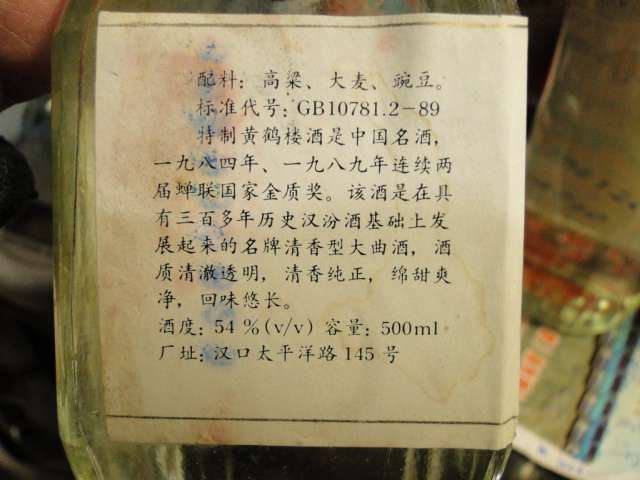 配料：高粱、大麦、豌豆。
标准代号：GB10781.2-89
特制黄鹤楼酒是中国名酒，
一九八四年、一九八九年连续两
届蝉联国家金质奖。该酒是在具
有三百多年历史汉汾酒基础上发
展起来的名牌清香型大曲酒，酒
质清澈透明，清香纯正，绵甜爽
净，回味悠长。
酒度：54 %(v/v) 容量：500ml
厂址：汉口太平洋路 145 号